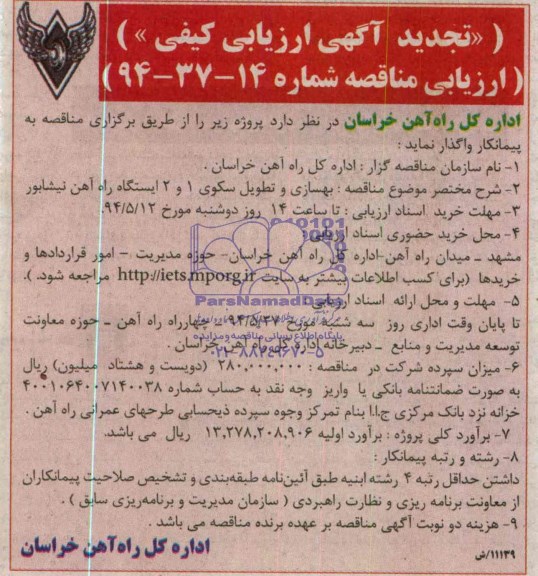 ( «تجدید آگهی ارزیابی کیفی » )
( ارزیابی مناقصه شماره ۱۴-۳۷-۹۴ )
اداره کل راه‌آهن خراسان در نظر دارد پروژه زیر را از طریق برگزاری مناقصه به
پیمانکار واگذار نماید :
۱- نام سازمان مناقصه گزار : اداره کل راه آهن خراسان .
۲- شرح مختصر موضوع مناقصه : بهسازی و تطویل سکوی ۱ و ۲ ایستگاه راه آهن نیشابور
۳- مهلت خرید اسناد ارزیابی : تا ساعت ۱۴ روز دوشنبه مورخ ۹۴/۵/۱۲.
۴- محل خرید حضوری اسناد ارزیابی :
مشهد ـ میدان راه آهن-اداره کل راه آهن خراسان- حوزه مدیریت - امور قراردادها و
خریدها (برای کسب اطلاعات بیشتر به سایت http://iets.mporg.ir مراجعه شود. ).
۵- مهلت و محل ارائه اسناد ارزیابی:
ParsNamadData
تا پایان وقت اداری روز سه شنبه مورخ ۹۴/۵/۲۷ - چهارراه راه آهن ـ حوزه معاونت
پایگاه اطلاع رسانی مناقصه و مزایده
توسعه مدیریت و منابع ـ دبیرخانه اداره کل راه آهن خراسان .
۰۲۱-۸۸۳۴۹۶۷۰-۵
۶- میزان سپرده شرکت در مناقصه : ۲۸۰,۰۰۰,۰۰۰ (دویست و هشتاد میلیون) ریال
به صورت ضمانتنامه بانکی یا واریز وجه نقد به حساب شماره ۴۰۰۱۰۶۴۰۰۷۱۴۰۰۳۸
خزانه نزد بانک مرکزی ج.ا.ا بنام تمرکز وجوه سپرده ذیحسابی طرحهای عمرانی راه آهن .
۷- برآورد کلی پروژه : برآورد اولیه ۱۳,۲۷۸,۲۰۸,۹۰۶ ریال می باشد.
۸- رشته و رتبه پیمانکار :
داشتن حداقل رتبه ۴ رشته ابنیه طبق آئین‌نامه طبقه‌بندی و تشخیص صلاحیت پیمانکاران
از معاونت برنامه ریزی و نظارت راهبردی ( سازمان مدیریت و برنامه‌ریزی سابق ) .
۹- هزینه دو نوبت آگهی مناقصه بر عهده برنده مناقصه می باشد .
اداره کل راه‌آهن خراسان
۱۱۱۳۹/ش